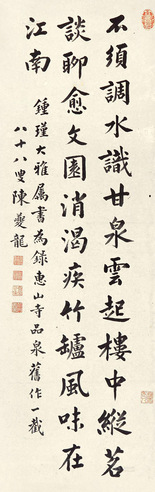 不須調水識甘泉雲起樓中縱茗
談聊愈文園消渴疾竹罏風味在
江南
鍾瑾大雅屬書為錄惠山寺品泉舊作一截
八十八叟陳夔龍